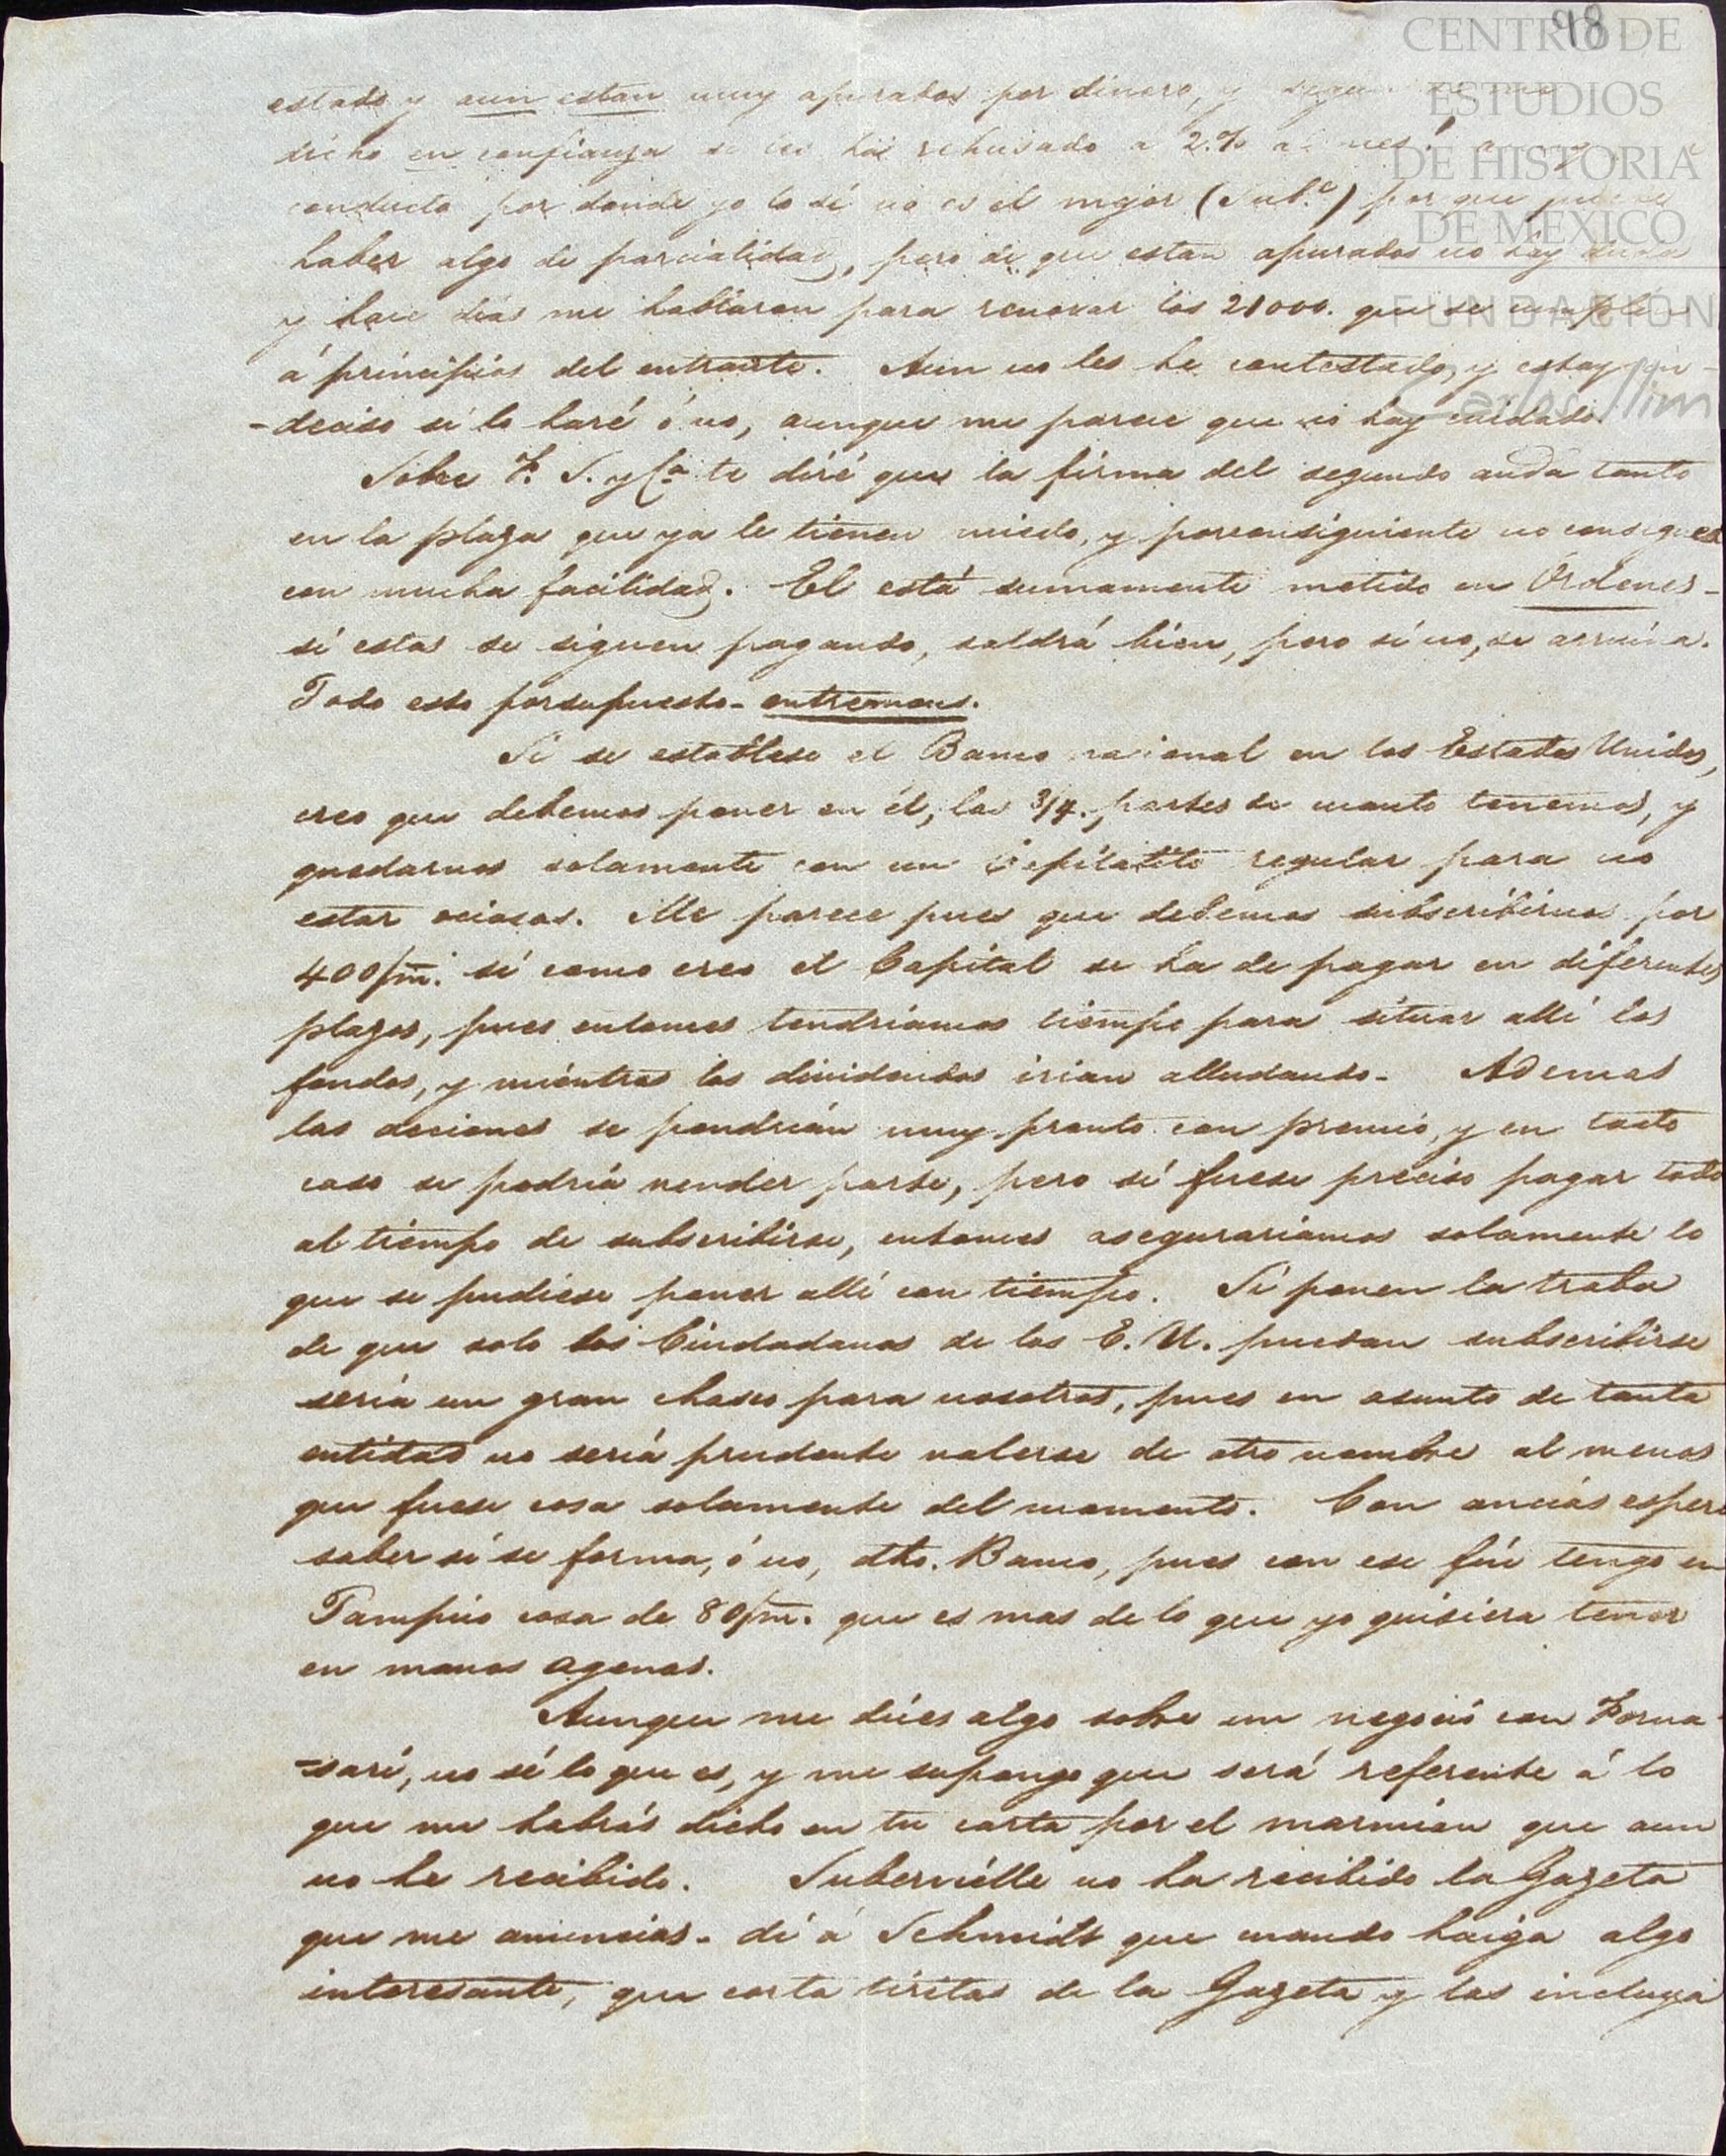 98
CENTRO DE
ESTUDIOS
DE HISTORIA
DE MEXICO
FUNDACIÓN
Carlos Slim
estado y aun estan muy apurados por dinero, y segun
dicho en confianza se les há rehusado a 2.% al mes!
conducto por donde yo lo sé no es el mejor (Sub.e) por que puede
haber algo de parcialidad, pero de que estan apurados no hay duda
y hace dias me hablaron para renovar los 21000. que se cumplen
á principios del entrante. Aun no les he contestado, y estoy in-
-deciso si lo haré ó no, aunque me parece que no hay cuidado.
Sobre F. S. y Ca. te diré que la firma del segundo anda tanto
en la plaza que ya le tienen miedo, y porconsiguiente no consigue
con mucha facilidad. El está sumamente metido en Ordenes-
si estas se siguen pagando, saldrá bien, pero si no, se arruina.
Todo esto porsupuesto- entrenous.
Si se establese el Banco nacional en los Estados Unidos,
creo que debemos poner en él, las 3/4. partes de cuanto tenemos, y
quedarnos solamente con un Capitalito regular para no
estar ociosos. Me parece pues que debemos subscribirnos por
400/m. si como creo el Capital se ha de pagar en diferentes
plazos, pues entonces tendriamos tiempo para situar allí los
fondos, y mientras los dividendos irian alludando- Ademas
las acciones se pondrián muy pronto con premio, y en tanto
caso se podriá vender parte, pero si fuese preciso pagar todo
al tiempo de subscribirse, entonces asegurariamos solamente lo
que se pudiese poner allí con tiempo. Si ponen la traba
de que solo los Ciudadanos de los E. U. puedan subscribirse
seria un gran chasco para nosotros, pues en asunto de tanta
entidad no seriá prudente valerse de otro nombre al menos
que fuese cosa solamente del momento. Con anciás espero
saber si se forma, ó no, dho. Banco, pues con ese fin tengo en
Tampico cosa de 80/m. que es mas de lo que yo quisiera tener
en manos agenas.
Aunque me dices algo sobre un negocio con Forna-
-sari, no sé lo que es, y me supongo que será referente á lo
que me habrás dicho en tu carta por el marmion que aun
no he recibido. Subervielle no ha recibido la Gazeta
que me anuncias- di á Schmidt que cuando haiga algo
interesante, que corta tiritas de la Gazeta y las incluya